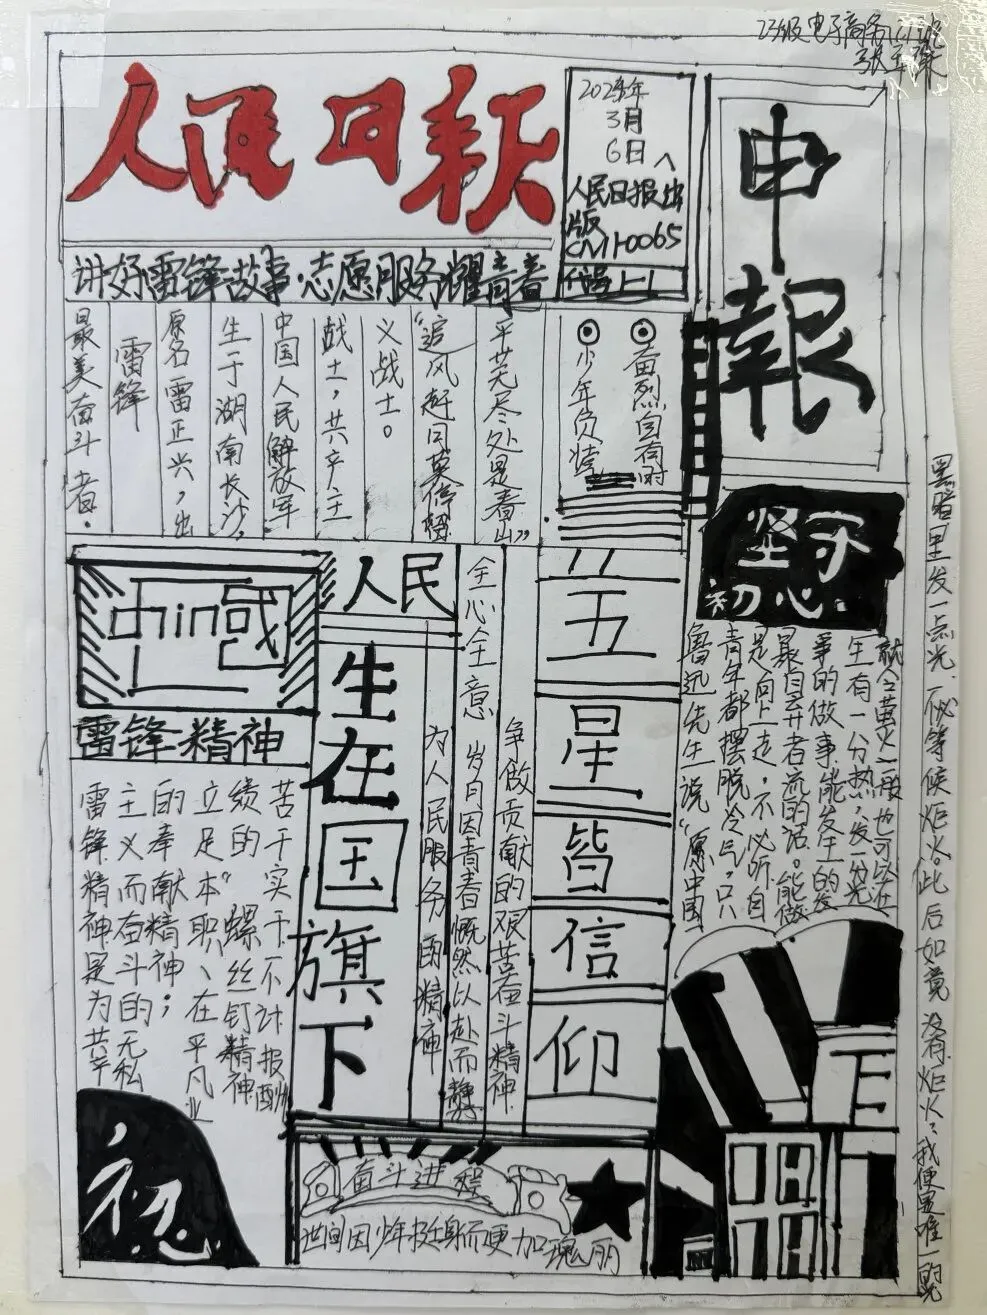 23级电子商务(1)班
人民日报
2024年
3月
6日
人民日报出
版
CN11-0065
代号1-1
申報
讲好雷锋故事·志愿服务耀青春
奋烈自有时
少年负壮
平芜尽处是春山”
“追风赶月莫停留
义战士。
战士，共产主
中国人民解放军
生于湖南长沙，
原名雷正兴，出
雷锋
最美奋斗者.
坚守
初心.
就令萤火一般也可以在
生有一分热，发一分光
事的做事能发生的发
暴自弃者流的话。能做
是向上走，不必听自
青年都摆脱冷气，只
鲁迅先生说“愿中国
黑暗里发一点光.不必等候炬火。此后如竟没有炬火：我便是唯一的光
五星皆信仰
人民
生在国旗下
全心全意
为人民服务的精神
岁月因青春慨然以赴而静
争做贡献的艰苦奋斗精神
雷锋精神
苦干实干不计报酬
绩的“螺丝钉精神
立足本职、在平凡业
的奉献精神；
主义而奋斗的无私
雷锋精神是为共产
初心
奋斗进程
世间因少年挺身而更加瑰丽